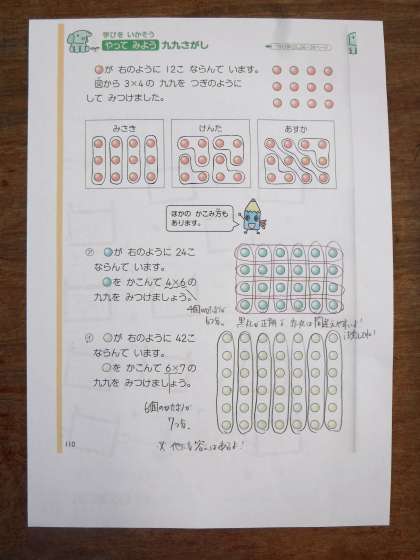 学びを いかそう
やって みよう 九九さがし
が 右のように 12こ ならんて います。
図から 3×4の 九九を つぎのように
して みつけました。
みさき
けんた
あすか
ほかの かこみ方も
あります。
ア が 右のように 24こ
ならんて います。
を かこんて 4×6の
九九を みつけましょう。
4個のカタマリが
6つ分。
イ が 右のように 42こ
ならんて います。
を かこんて 6×7の
九九を みつけましょう。
6個のカタマリが
7つ分。
※ 他にも答えはあるよ!
110